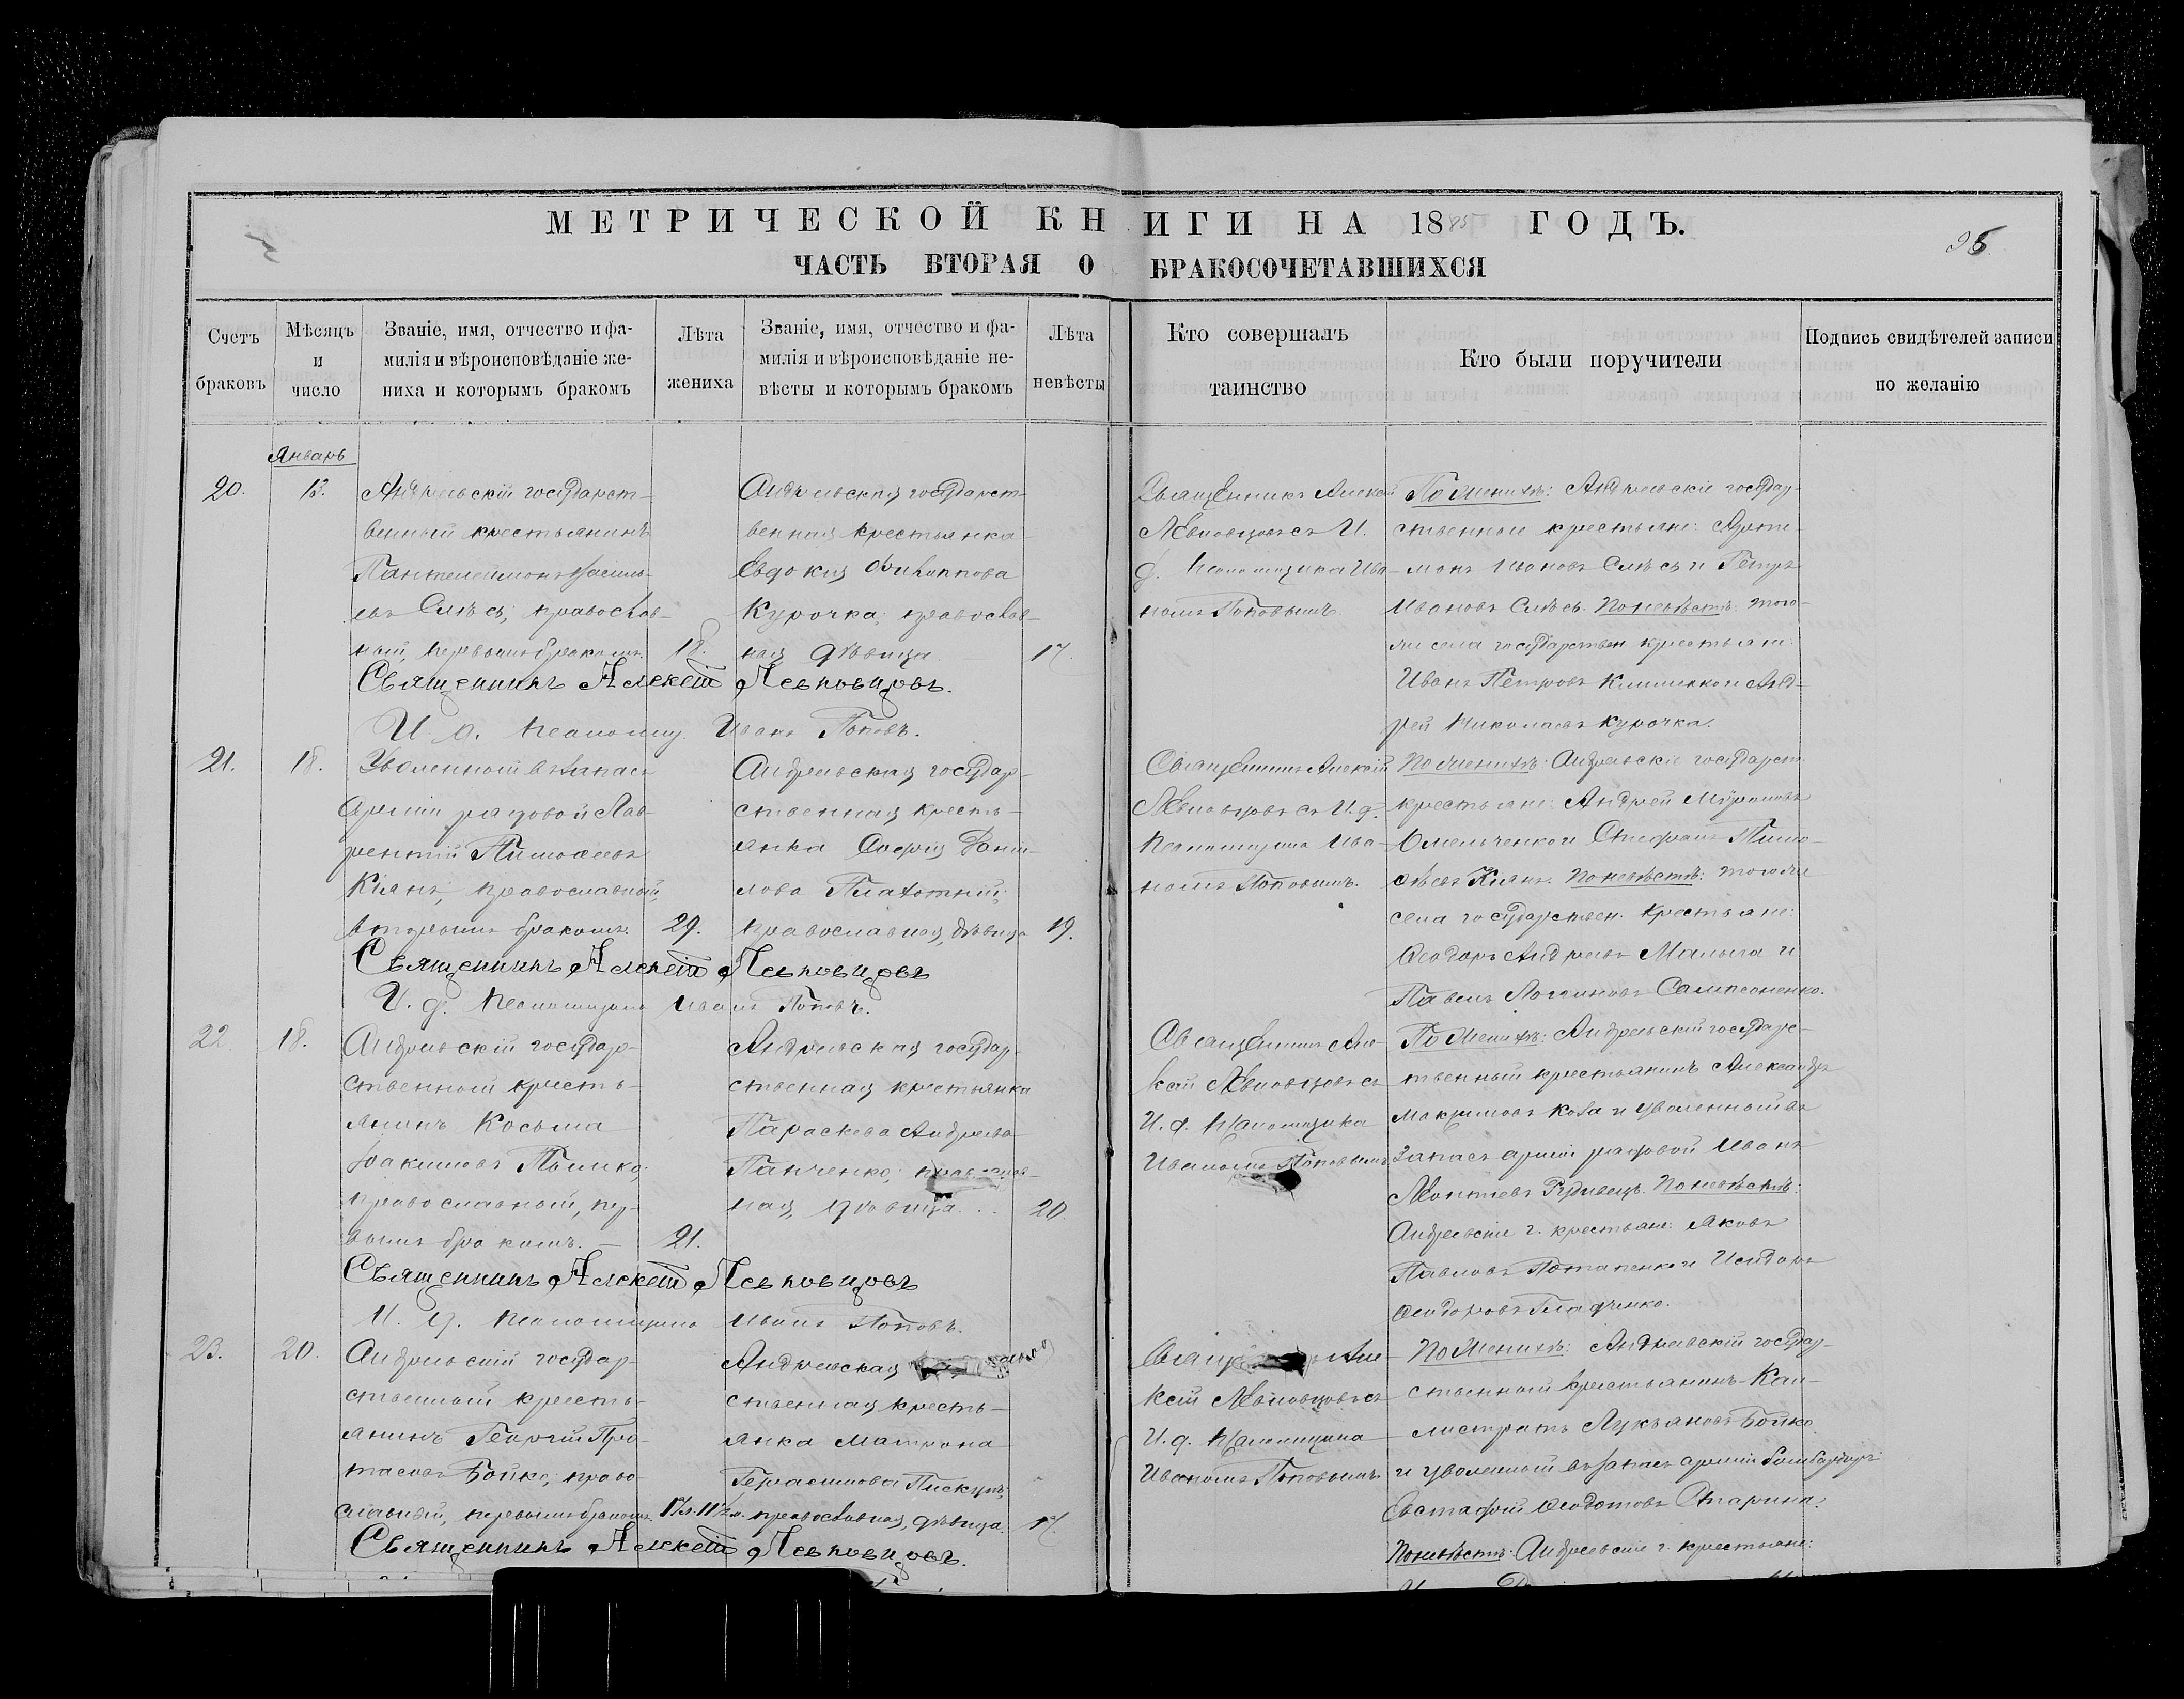 МЕТРИЧЕСКОЙ КНИГИ НА 1885 ГОДЪ.
ЧАСТЬ ВТОРАЯ О БРАКОСОЧЕТАВШИХСЯ
Счетъ браковъ
Мѣсяцъ и число
Званіе, имя, отчество и фа-
милія и вѣроисповѣданіе же-
ниха и которымъ бракомъ
Лѣта жениха
Званіе, имя, отчество и фа-
милія и вѣроисповѣданіе не-
вѣсты и которымъ бракомъ
Лѣта невѣсты
Кто совершалъ
таинство
Кто были поручители
Подпись свидѣтелей записи
по желанію
Январь
20.
13.
Андреевскій государст-
венный крестьянинъ
Пантелеимонъ Василь-
евъ Смѣсъ, православ-
ный, первымъ бракомъ.
18.
Андреевская государст-
венная крестьянка
Евдокія Филиппова
Курочка, православ-
ная дѣвица
17.
Священникъ Алексѣй
Левковцовъ съ И.
д. псаломщика Ива-
номъ Поповымъ.
По женихѣ: Андреевскіе государ-
ственные крестьяне: Арте-
монъ Ивановъ Смѣсъ и Петръ
Ивановъ Смѣсъ. По невѣстѣ: того-
же села государствен. крестьяне:
Иванъ Петровъ и Анд-
рей Николаевъ Курочка.
Священникъ Алексѣй Левковцовъ.
И. д. псаломщ. Иванъ Поповъ.
21.
18.
Уволенный въ запасъ
арміи рядовой Лав-
рентій Тимофеевъ
Кіянъ, православный,
вторымъ бракомъ.
29.
Андреевская государ-
ственная кресть-
янка Софія Дани-
лова
православная, дѣвица
19.
Священникъ Алексѣй
Левковцовъ съ И. д.
псаломщика Ива-
номъ Поповымъ.
По женихѣ: Андреевскіе государст.
крестьяне: Андрей Мироновъ
Омельченко и Стефанъ Тимо-
фѣевъ Кіянъ. По невѣстѣ: того же
села государствен. крестьяне:
Феодоръ Андреевъ Малыга и
Павелъ Логиновъ Сампсоненко.
Священникъ Алексѣй Левковцовъ
И. д. псаломщика Иванъ Поповъ.
22.
18.
Андреевскій государ-
ственный кресть-
янинъ Косьма
Іоакимовъ
православный, пер-
вымъ бракомъ. —
21.
Андреевская государ-
ственная крестьянка
Параскева Андреева
Панченко, православ-
ная, дѣвица
20.
Священникъ Але-
ксѣй Левковцовъ съ
И. д. псаломщика
Иваномъ Поповымъ
По женихѣ: Андреевскій государс-
твенный крестьянинъ Александръ
Максимовъ Коза и уволенный въ
запасъ арміи рядовой Иванъ
Леонтіевъ По невѣстѣ:
Андреевскіе г. крестьяне: Яковъ
Павловъ Потапенко и Исидоръ
Феодоровъ
Священникъ Алексѣй Левковцовъ
И. д. псаломщика Иванъ Поповъ.
23.
20.
Андреевскій государ-
ственный кресть-
янинъ Георгій Про-
тасовъ Бойко, право-
славный, первымъ бракомъ.
17 л. 11½ м.
Андреевская
ственная кресть-
янка Матрона
Герасимова Пискунъ,
православная, дѣвица.
17.
Але-
ксѣй Левковцовъ съ
И. д. псаломщика
Иваномъ Поповымъ.
По женихѣ: Андреевскій государ-
ственный крестьянинъ Кал-
листратъ Лукьяновъ Бойко
и уволенный въ запасъ арміи бомбардиръ
Евстафій Феодотовъ Старина.
По невѣстѣ: Андреевскіе г. крестьяне:
Священникъ Алексѣй Левковцовъ.